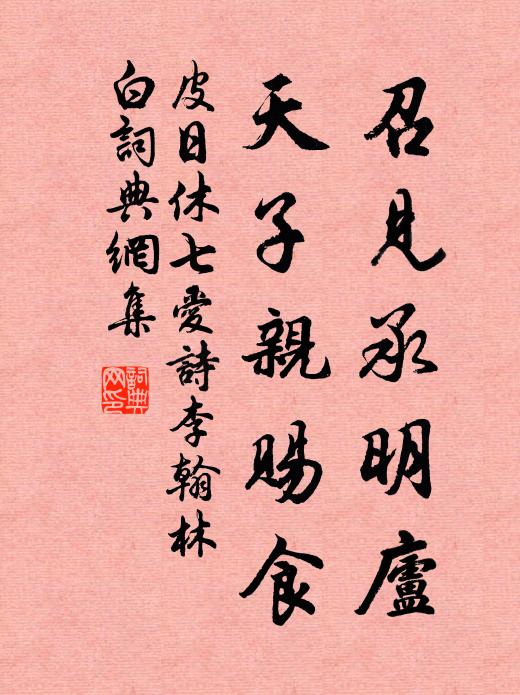 召見承明廬
天子親賜食
皮日休七愛詩李翰林
白詞典網集
詞典網印